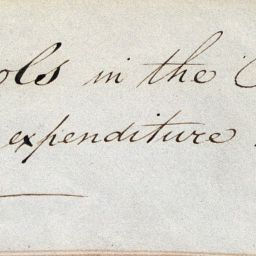 ols in the
expenditure